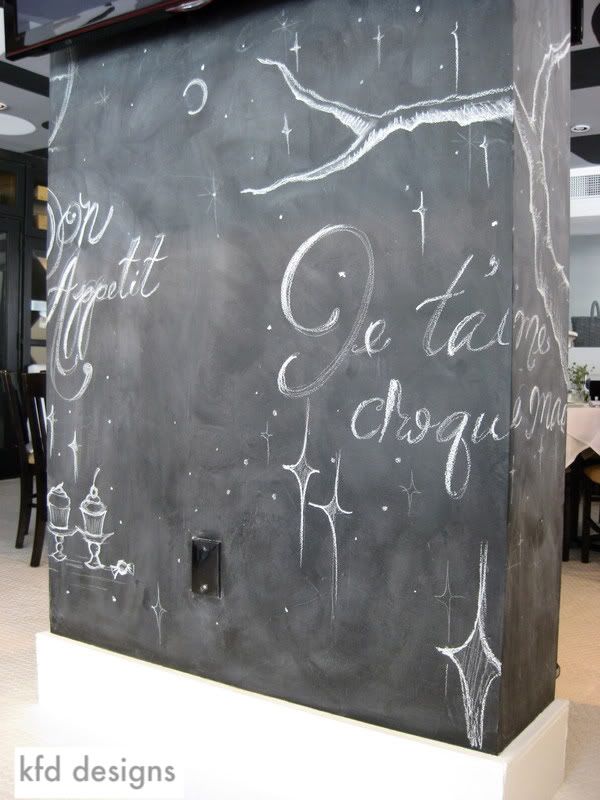 Bon
Appetit
Je t'aime
croque
kfd designs